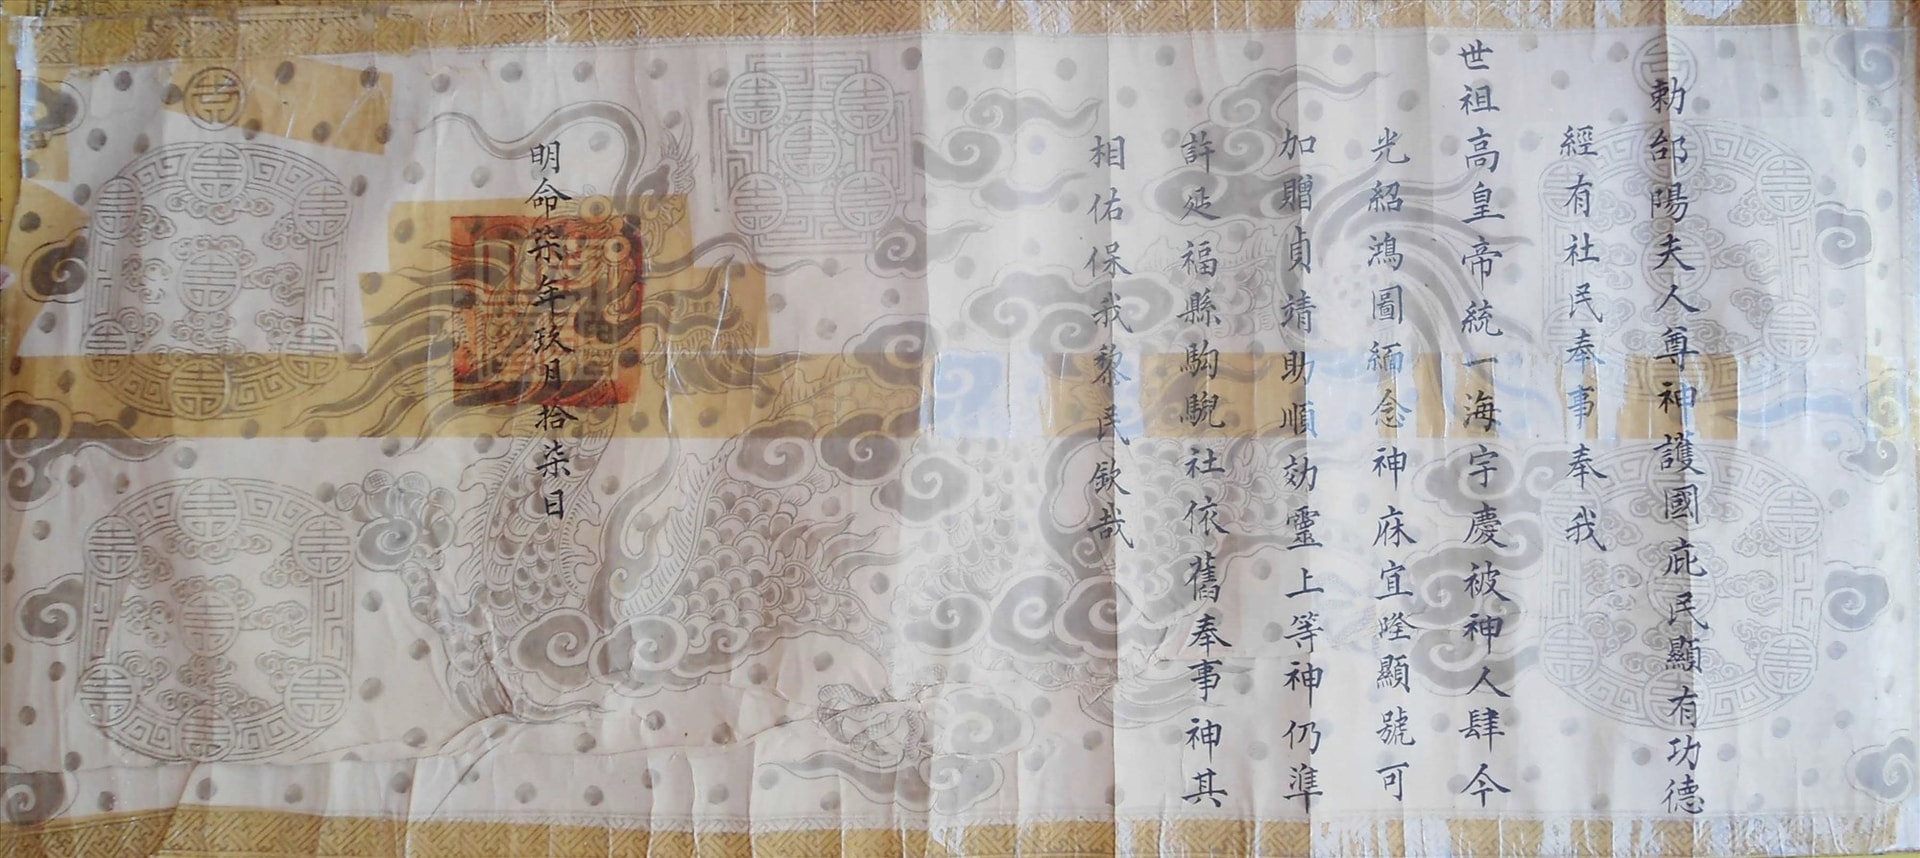 勅郃陽夫人尊神護國庇民顯有功德
經有社民奉事奉我
世祖高皇帝統一海宇慶被神人肆今
光紹鴻圖緬念神庥宜隆顯號可
加贈貞靖助順効靈上等神仍準
許延福縣駒驑社依舊奉事神其
相佑保我黎民欽哉
明命柒年玖月拾柒日